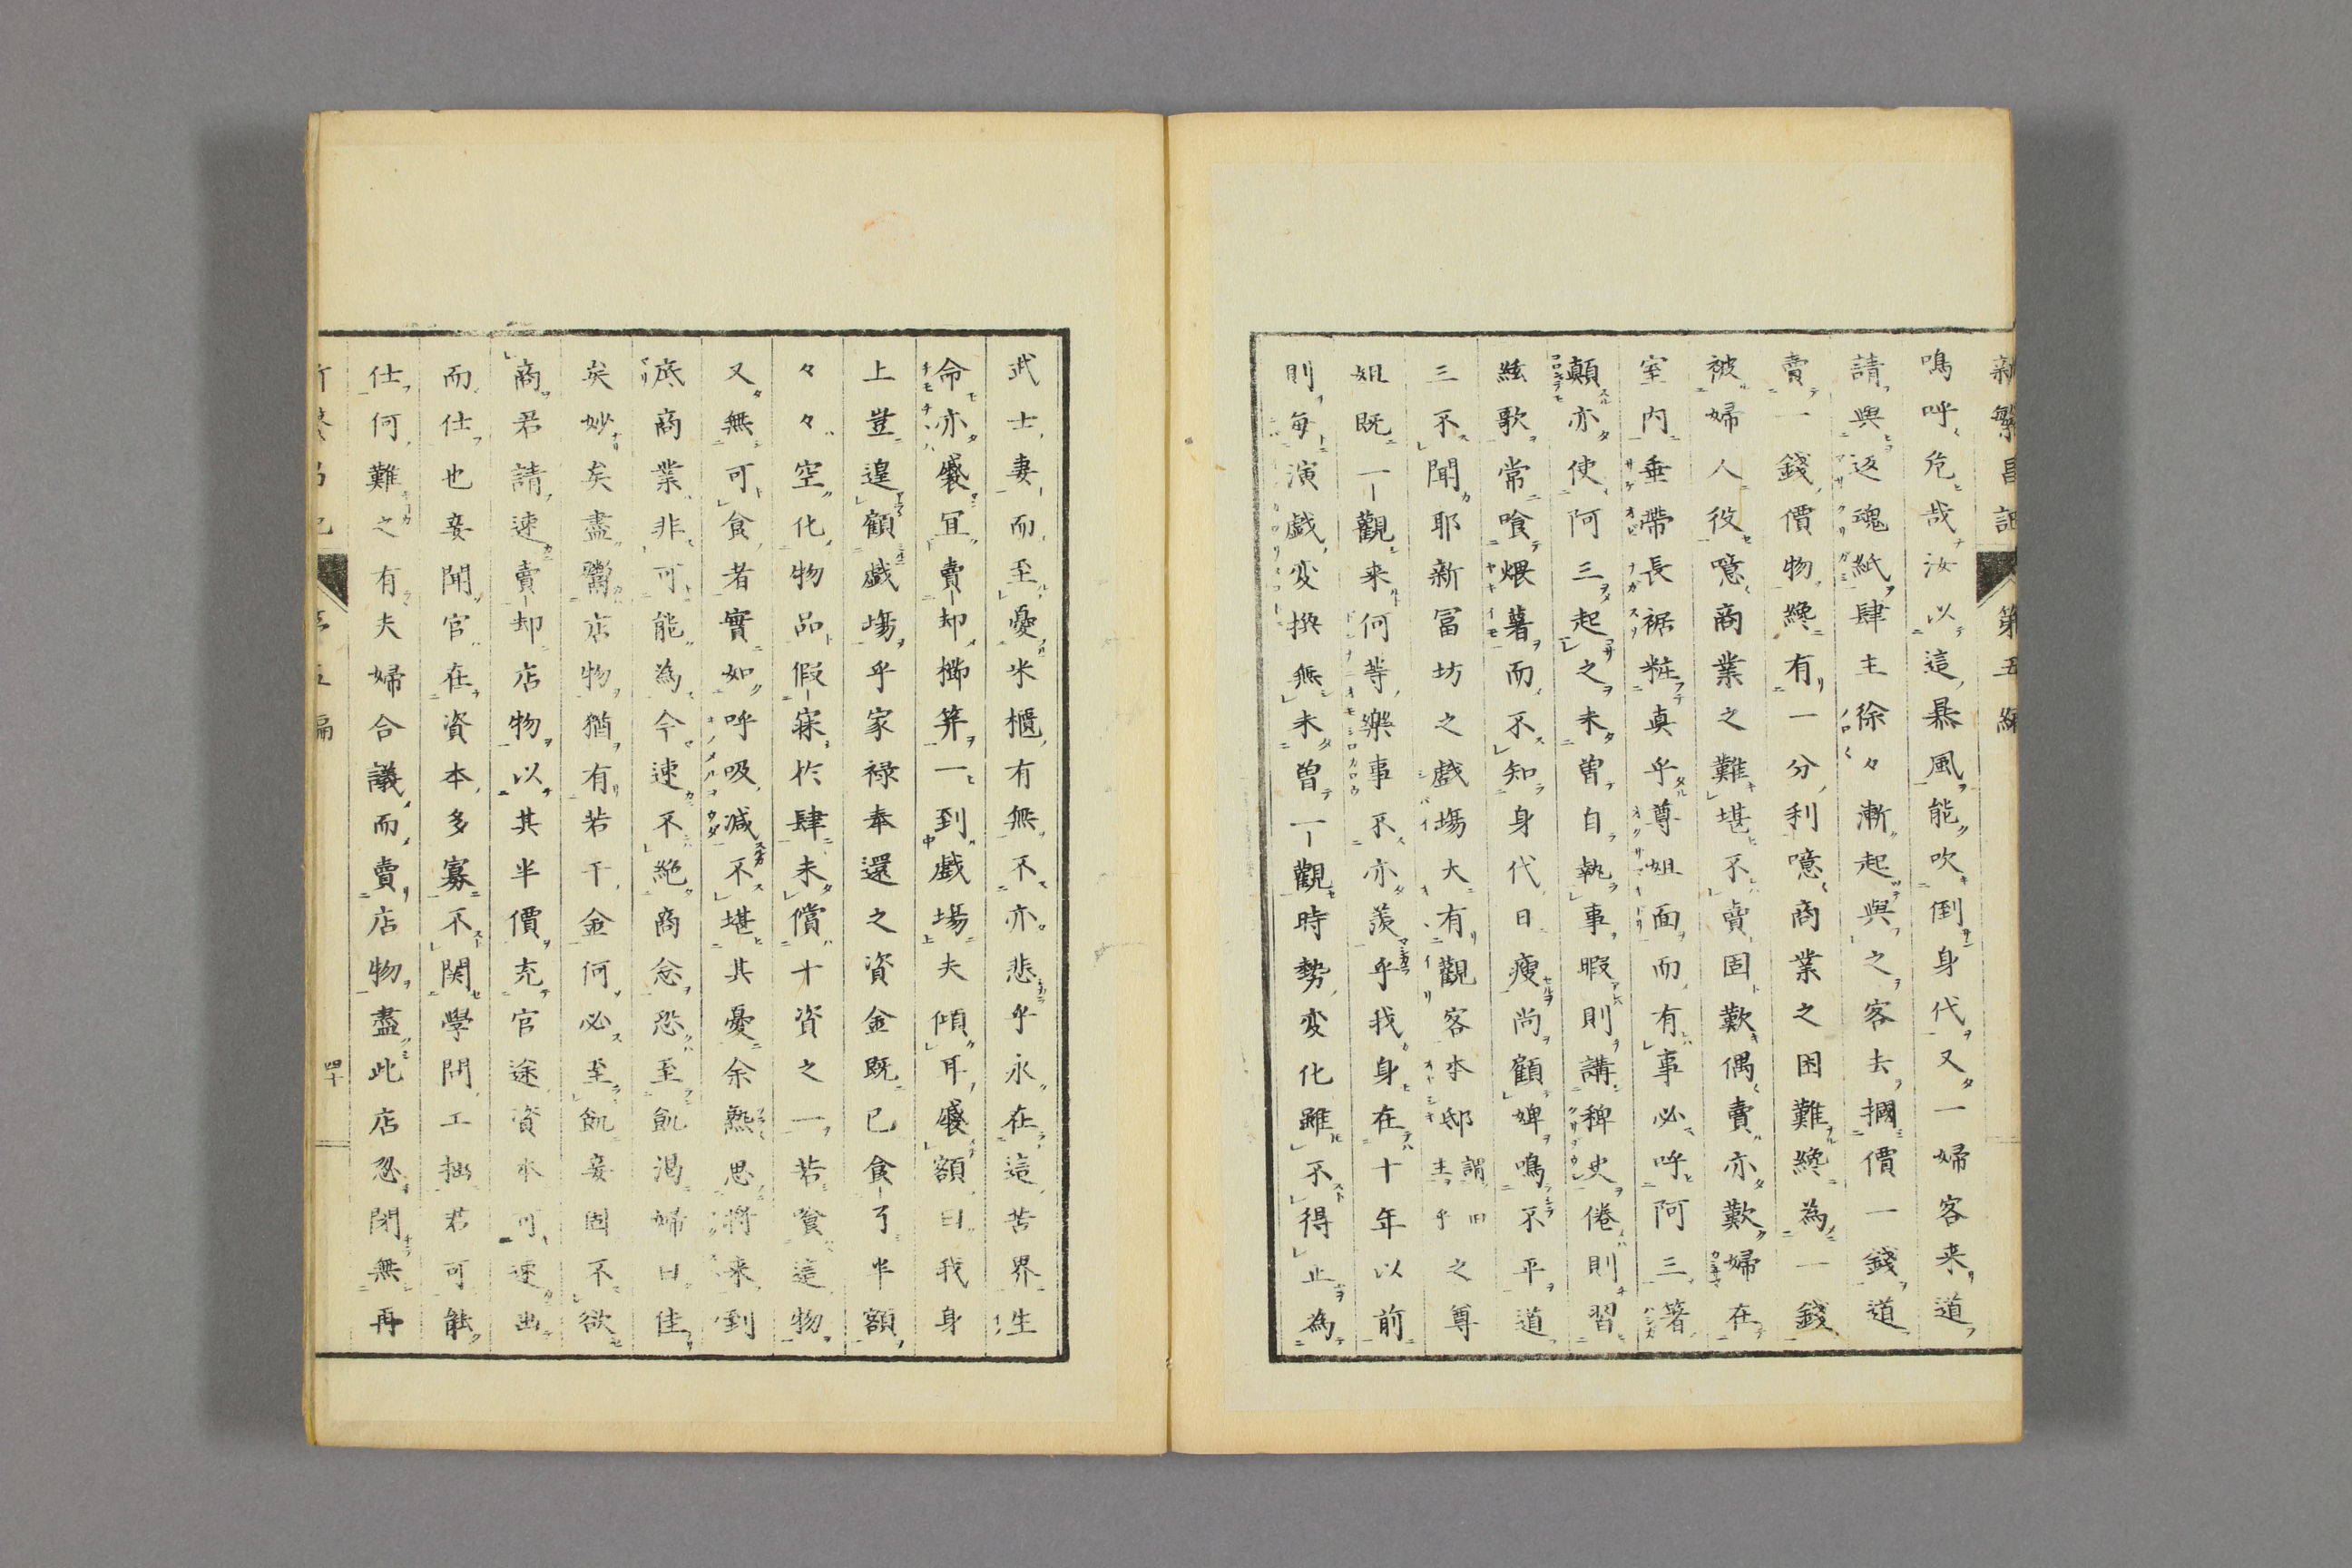 新繁昌記 第五編
鳴呼危哉汝以這暴風能吹倒身代又一婦客来道
請與返魂紙肆主徐々漸起與之客去摑價一錢道
賣一錢價物纔有一分利噫商業之困難纔為一錢
被婦人役噫商業之難堪不賣固歎偶賣亦歎婦在
室内垂帶長裾粧真乎尊姐面而有事必呼阿三箸
顛亦使阿三起之未曽自執事暇則講稗史倦則習
絃歌常喰煨薯而不知身代日瘦尚顧婢鳴不平道
三不聞耶新冨坊之戯場大有觀客本邸謂旧主乎之尊
姐既一觀来何等樂事不亦羨乎我身在十年以前
則毎演戯変換無未曽一觀時勢変化雖不得止為
武士妻而至憂米櫃有無不亦悲乎永在這苦界生
命亦襞冝賣却櫛笄一到戯場夫傾耳襞額曰我身
上豈遑顧戯場乎家禄奉還之資金既已食了半額
々々空化物品假寐於肆未償十資之一若賞這物
又無可食者實如呼吸减不堪其憂余熟思将来到
底商業非可能為今速不絶商念恐至飢渇婦曰佳
矣妙矣盡鬻店物猶有若干金何必至飢妾固不欲
商君請速賣却店物以其半價充官途資本可速出
而仕也妾聞官在資本多寡不関學問工拙若可能
仕何難之有夫婦合議而賣店物盡此店忽閉無再
四十